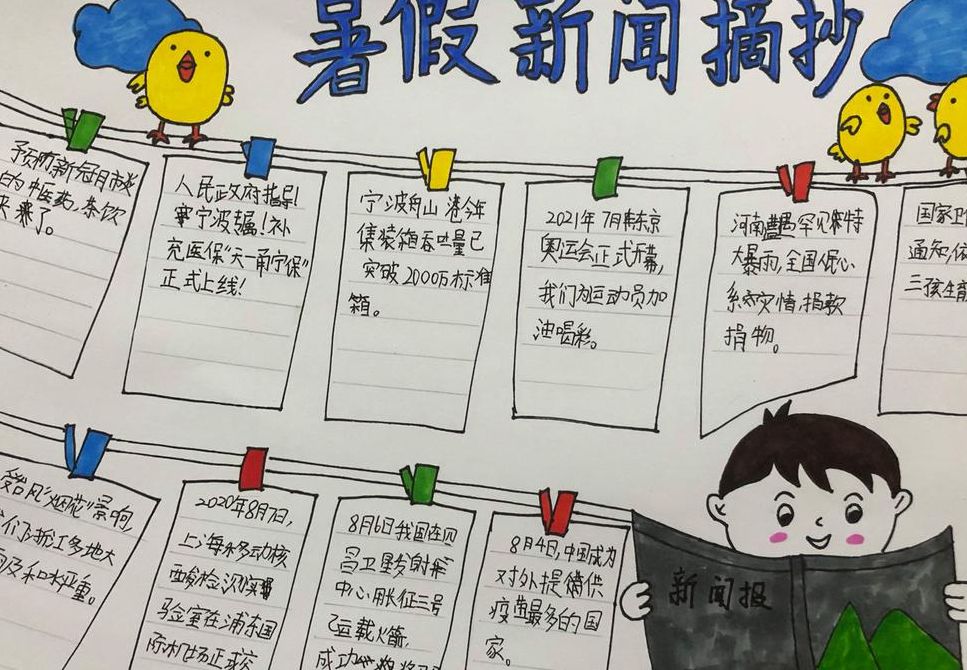 暑假新闻摘抄
预防新冠肺炎
的中医药,茶饮
来袭了。
人民政府指导!
宁波专属!补
充医保"天一甬宁保"
正式上线!
宁波舟山港今年
集装箱吞吐量已
突破2000万标准
箱。
2021年7月东京
奥运会正式开幕,
我们为运动员加
油喝彩。
河南遭遇罕见特
大暴雨,全国人民心
系灾情,捐款
捐物。
国家卫
通知,依
三孩生育
受台风"烟花"影响,
们浙江多地大
雨及积水严重。
2020年8月7日,
上海移动核
酸检测实
验室在浦东国
际机场正式
8月6日我国在西
昌卫星发射
中心用长征三号
乙运载火箭,
成功
8月4日,中国成为
对外提供
疫苗最多的国
家。
新闻报